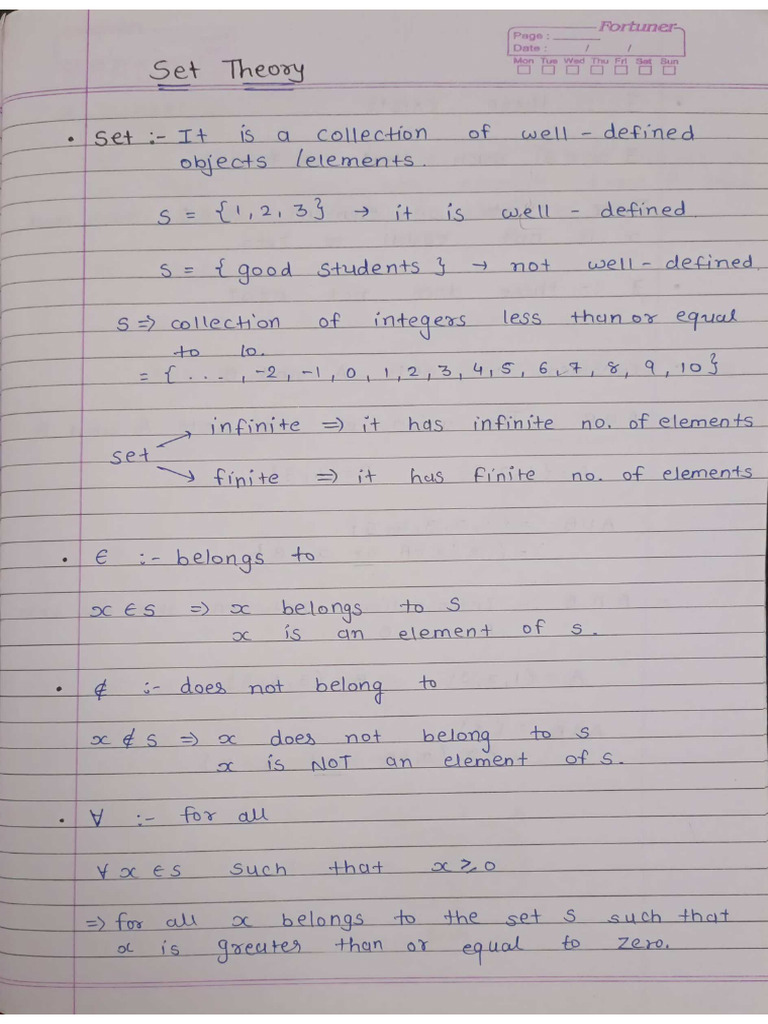 Fortuner
Page :
Date : / /
Mon Tue Wed Thu Fri Sat Sun
Set Theory
• Set :- It is a collection of well - defined
objects /elements.
S = {1, 2, 3} → it is well - defined
S = { good students } → not well - defined
S ⇒ collection of integers less than or equal
to 10.
= { ..., -2, -1, 0, 1, 2, 3, 4, 5, 6, 7, 8, 9, 10}
infinite ⇒ it has infinite no. of elements
set
finite ⇒ it has finite no. of elements
• ∈ :- belongs to
x ∈ S ⇒ x belongs to S
x is an element of S.
• ∉ :- does not belong to
x ∉ S ⇒ x does not belong to S
x is NOT an element of S.
• ∀ :- for all
∀ x ∈ S such that x ≥ 0
⇒ for all x belongs to the set S such that
x is greater than or equal to zero.